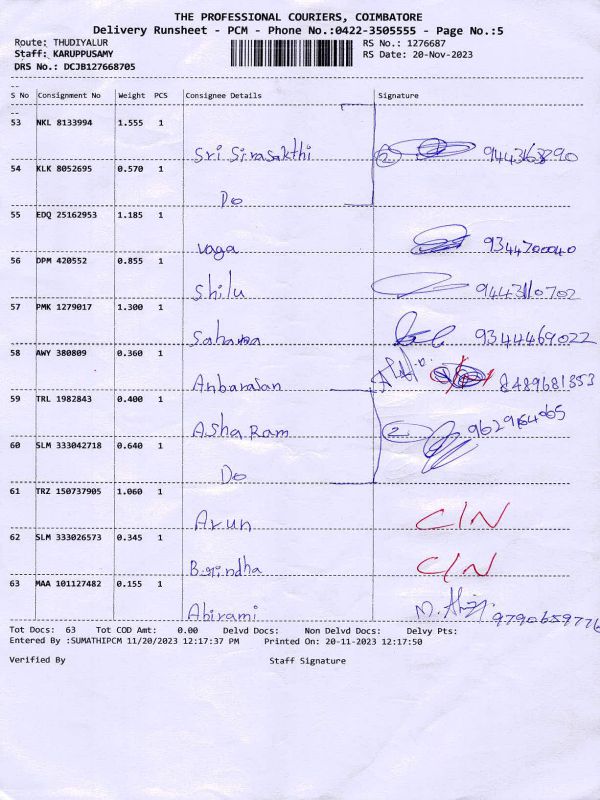 THE PROFESSIONAL COURIERS, COIMBATORE
Delivery Runsheet - PCM - Phone No.:0422-3505555 - Page No.:5
Route: THUDIYALUR RS No.: 1276687
Staff: KARUPPUSAMY RS Date: 20-Nov-2023
DRS No.: DCJB127668705
S No Consignment No Weight PCS Consignee Details Signature
53 NKL 8133994 1.555 1 Sri Sivasakthi 2 9443163890
54 KLK 8052695 0.570 1 Do
55 EDQ 25162953 1.185 1 vaga 9344700040
56 DPM 420552 0.855 1 Shilu 9443110702
57 PMK 1279017 1.300 1 Sahana 9344469022
58 AWY 380809 0.360 1 Anbarasan 8489681353
59 TRL 1982843 0.400 1 Asha Ram 2 9629164065
60 SLM 333042718 0.640 1 Do
61 TRZ 150737905 1.060 1 Arun C/N
62 SLM 333026573 0.345 1 Brindha C/N
63 MAA 101127482 0.155 1 Abirami 9790659776
Tot Docs: 63 Tot COD Amt: 0.00 Delvd Docs: Non Delvd Docs: Delvy Pts:
Entered By :SUMATHIPCM 11/20/2023 12:17:37 PM Printed On: 20-11-2023 12:17:50
Verified By Staff Signature